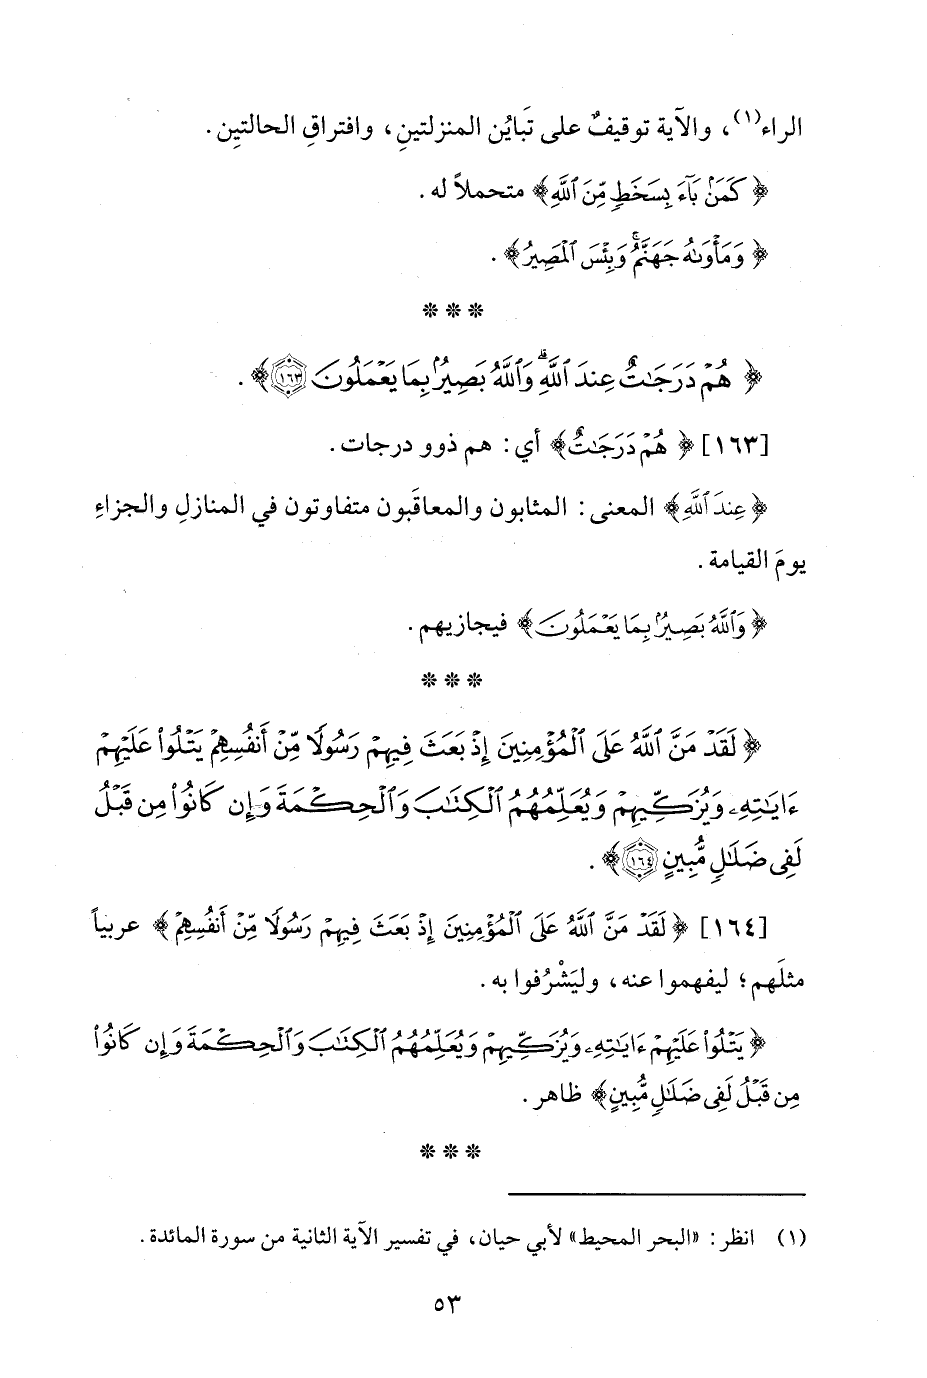 الراء(١)، والآية توقيفٌ على تَبايُن المنزلتينِ، وافتراقِ الحالتينِ.
﴿كَمَنۢ بَآءَ بِسَخَطٍ مِّنَ ٱللَّهِ﴾ متحملاً له.
﴿وَمَأْوَىٰهُ جَهَنَّمُ ۚ وَبِئْسَ ٱلْمَصِيرُ﴾.
* * *
﴿هُمْ دَرَجَٰتٌ عِندَ ٱللَّهِ ۗ وَٱللَّهُ بَصِيرٌۢ بِمَا يَعْمَلُونَ ١٦٣﴾.
[١٦٣] ﴿هُمْ دَرَجَٰتٌ﴾ أي: هم ذوو درجات.
﴿عِندَ ٱللَّهِ﴾ المعنى: المثابون والمعاقَبون متفاوتون في المنازلِ والجزاءِ
يومَ القيامة.
﴿وَٱللَّهُ بَصِيرٌۢ بِمَا يَعْمَلُونَ﴾ فيجازيهم.
* * *
﴿لَقَدْ مَنَّ ٱللَّهُ عَلَى ٱلْمُؤْمِنِينَ إِذْ بَعَثَ فِيهِمْ رَسُولًا مِّنْ أَنفُسِهِمْ يَتْلُوا۟ عَلَيْهِمْ
ءَايَٰتِهِۦ وَيُزَكِّيهِمْ وَيُعَلِّمُهُمُ ٱلْكِتَٰبَ وَٱلْحِكْمَةَ وَإِن كَانُوا۟ مِن قَبْلُ
لَفِى ضَلَٰلٍ مُّبِينٍ ١٦٤﴾.
[١٦٤] ﴿لَقَدْ مَنَّ ٱللَّهُ عَلَى ٱلْمُؤْمِنِينَ إِذْ بَعَثَ فِيهِمْ رَسُولًا مِّنْ أَنفُسِهِمْ﴾ عربياً
مثلَهم؛ ليفهموا عنه، وليَشْرُفوا به.
﴿يَتْلُوا۟ عَلَيْهِمْ ءَايَٰتِهِۦ وَيُزَكِّيهِمْ وَيُعَلِّمُهُمُ ٱلْكِتَٰبَ وَٱلْحِكْمَةَ وَإِن كَانُوا۟
مِن قَبْلُ لَفِى ضَلَٰلٍ مُّبِينٍ﴾ ظاهر.
* * *
(١) انظر: «البحر المحيط» لأبي حيان، في تفسير الآية الثانية من سورة المائدة.
٥٣